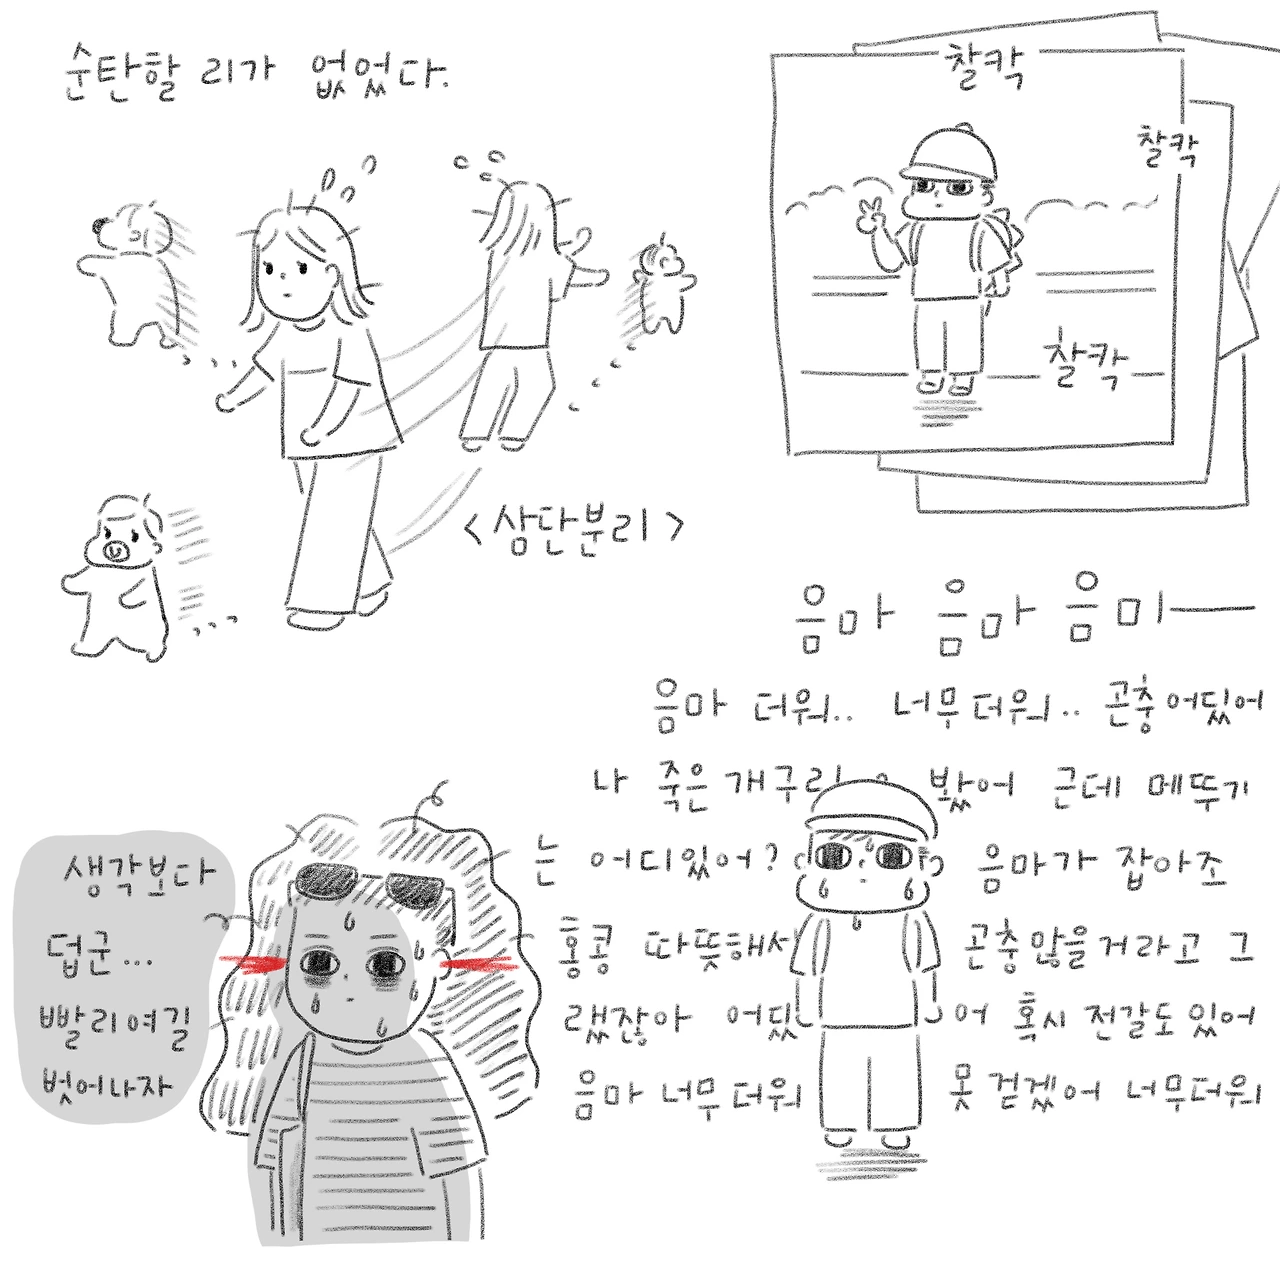 순탄할 리가 없었다.
찰칵
찰칵
찰칵
<삼단분리>
음마 음마 음미—
음마 더워.. 너무더워.. 곤충어딨어
나 죽은개구리 봤어 근데 메뚜기
는 어디있어? 음마가 잡아조
홍콩 따뜻해서 곤충많을거라고 그
랬잖아 어딨어 혹시 전갈도있어
음마 너무더워 못 걷겠어 너무더워
생각보다
덥군...
빨리여길
벗어나자